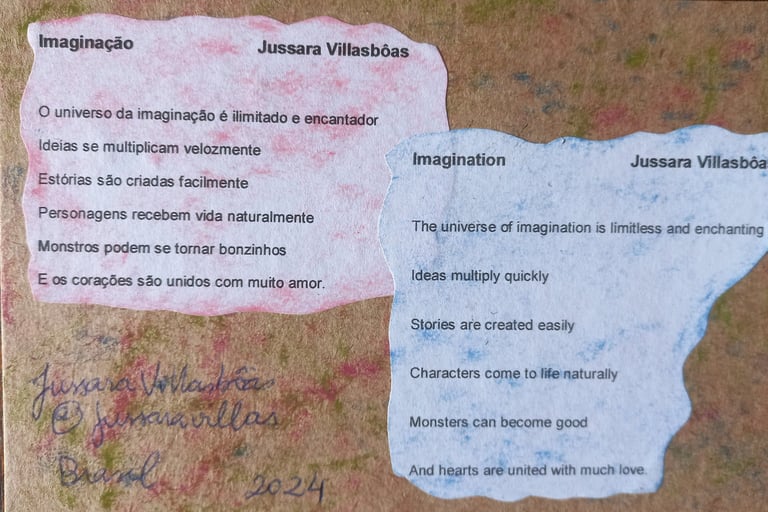 Imaginação Jussara Villasbôas
O universo da imaginação é ilimitado e encantador
Ideias se multiplicam velozmente
Estórias são criadas facilmente
Personagens recebem vida naturalmente
Monstros podem se tornar bonzinhos
E os corações são unidos com muito amor.
Imagination Jussara Villasbôa
The universe of imagination is limitless and enchanting
Ideas multiply quickly
Stories are created easily
Characters come to life naturally
Monsters can become good
And hearts are united with much love.
Jussara Villasbôas
@jussaravillas
Brasil
2024